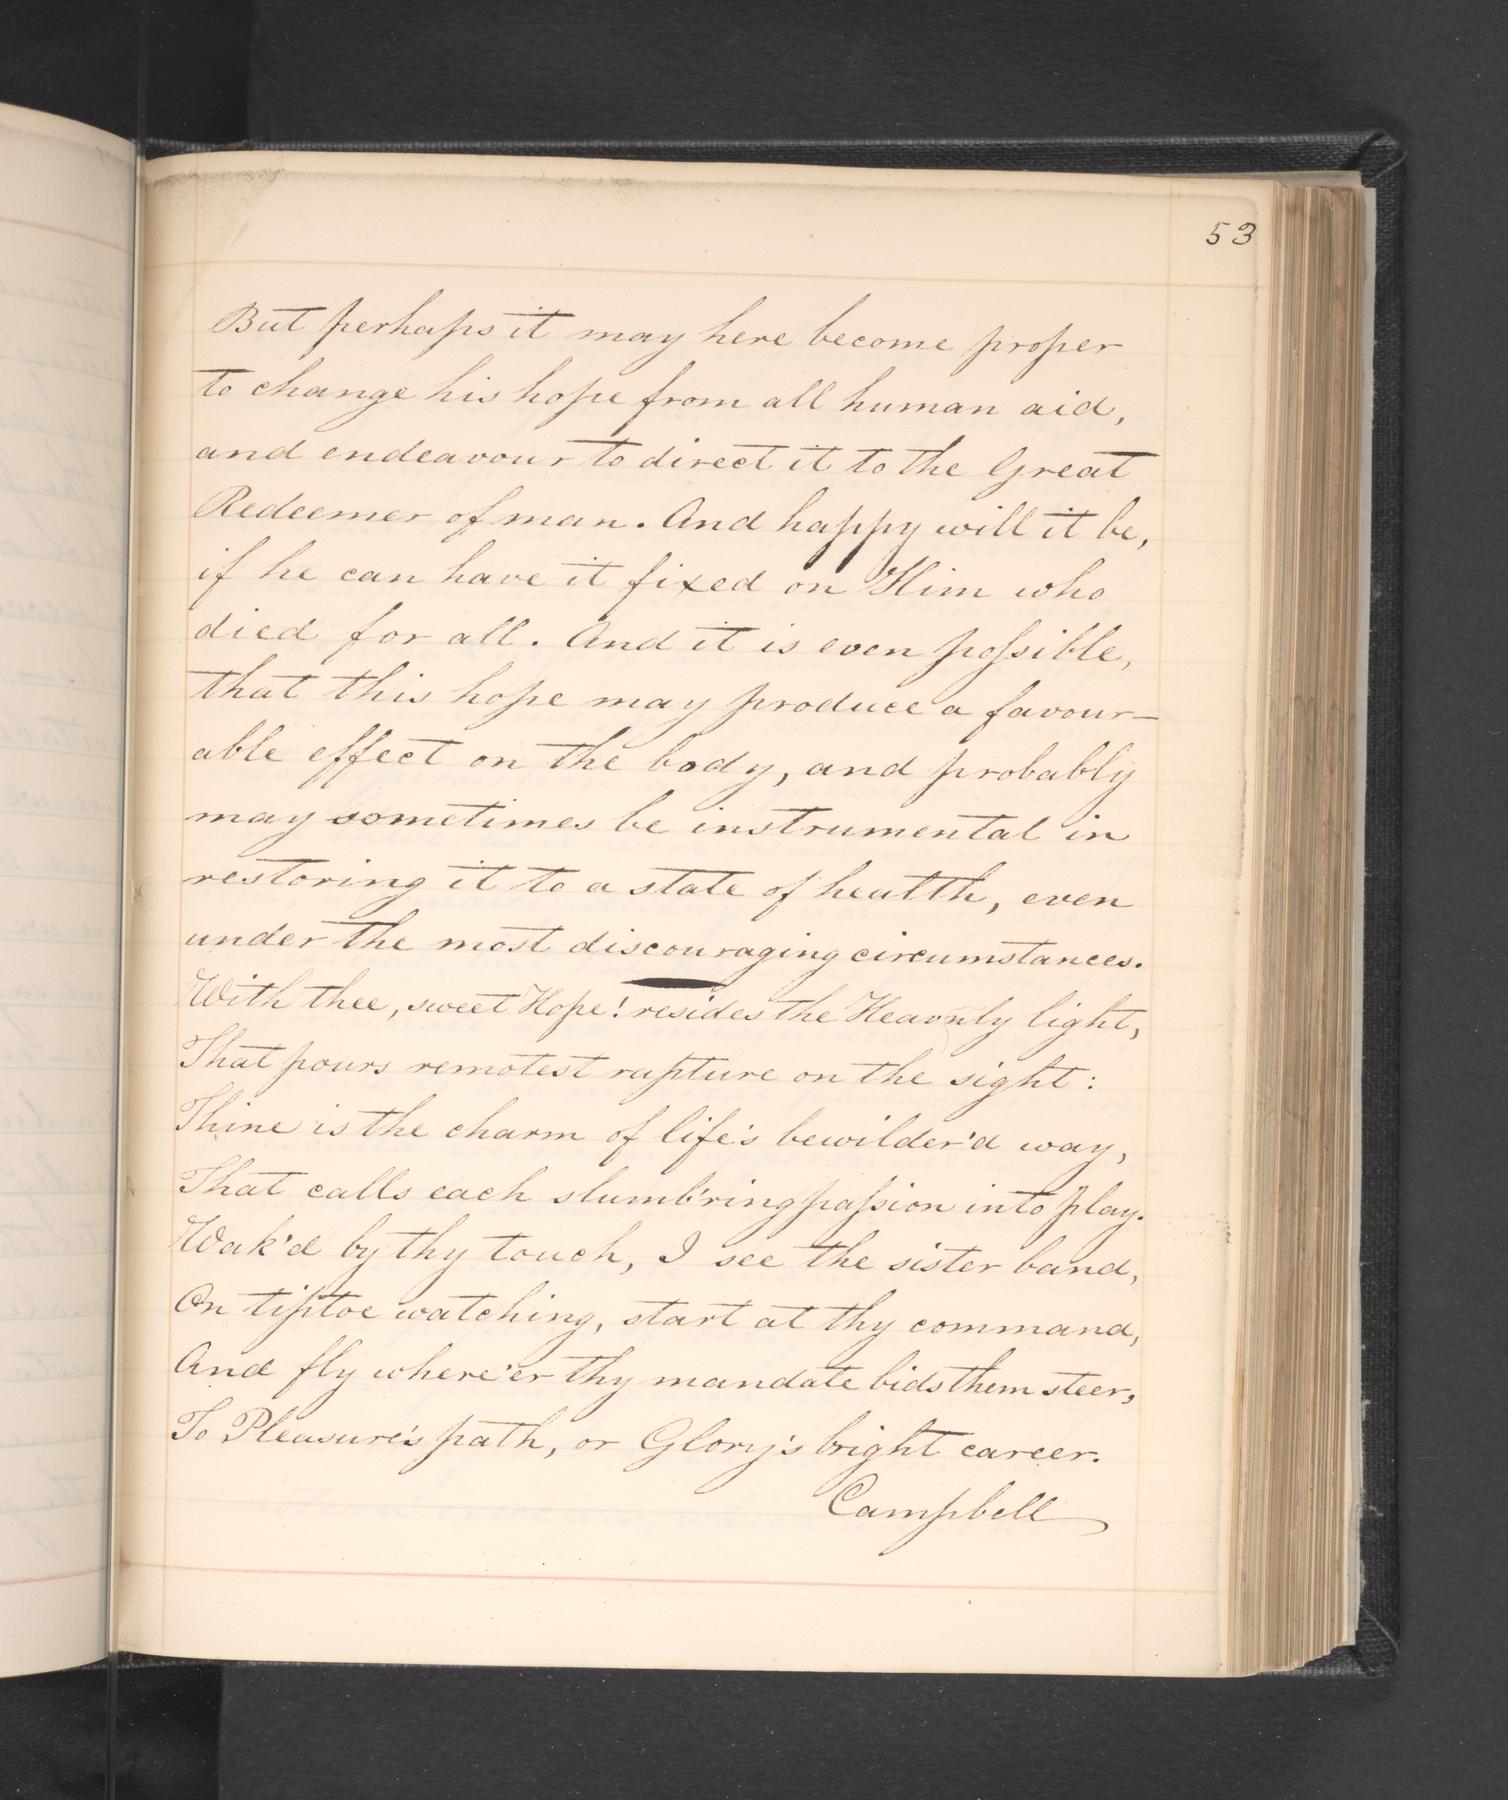 53
But perhaps it may here become proper
to change his hope from all human aid,
and endeavour to direct it to the Great
Redeemer of man. And happy will it be,
if he can have it fixed on Him who
died for all. And it is even poſsible,
that this hope may produce a favour-
able effect on the body, and probably
may sometimes be instrumental in
restoring it to a state of health, even
under the most discouraging circumstances.
With thee, sweet Hope! resides the Heav'nly light,
That pours remotest rapture on the sight:
Thine is the charm of life's bewilder'd way,
That calls each slumb'ring paſsion into play.
Wak'd by thy touch, I see the sister band,
On tiptoe watching, start at thy command,
And fly where'er thy mandate bids them steer,
To Pleasure's path, or Glory's bright career.
Campbell